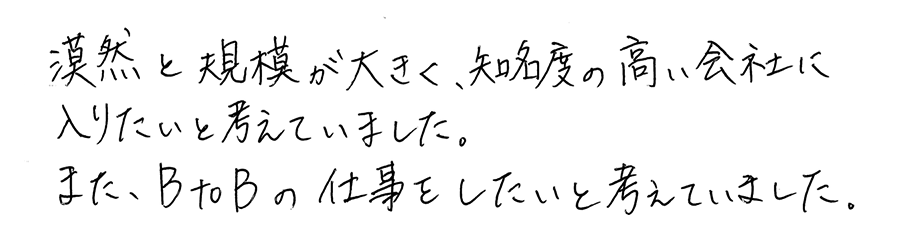 漠然と規模が大きく、知名度の高い会社に
入りたいと考えていました。
また、BtoBの仕事をしたいと考えていました。